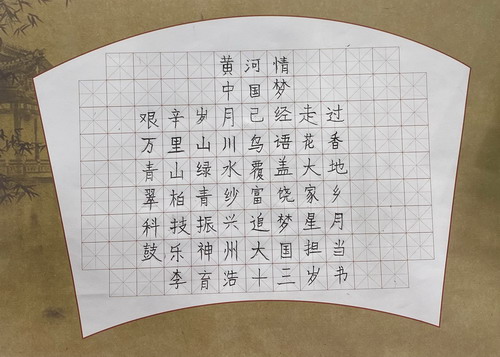 黄河情
中国梦
艰辛岁月已经走过
万里山川鸟语花香
青山绿水覆盖大地
翠柏青纱富饶家乡
科技振兴追梦星月
鼓乐神州大国担当
李育浩十三岁书